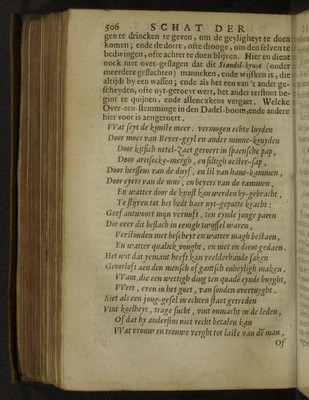 506 SCHAT DER
gen te drincken te geven, om de geyligheyt te doen
komen; ende de dorre, ofte drooge, om den selven te
bedwingen, ofte achter te doen blijven. Hier en dient
oock niet over-geslagen dat dit Standel-kruyt (onder
meerdere geslachten) manneken, ende wijfken is, die
altijdt by een wassen; ende als het een van 't ander ge-
scheyden, ofte uyt-geroeyt wert, het ander terstont be-
gint te quijnen, ende allencxkens vergaet. Welcke
Over-een-stemminge in den Dadel-boom, ende andere
hier voor is aengeroert.
VVat seyt de konste meer. vermogen echte luyden
Door moes van Bever-geyl en ander minne-kruyden
Door kitsich netel-Zaet geroert in spaensche pap,
Door artisocke-mergh, en siltigh oester-sap,
Door herssens van de duyf, en lil van hane-kammen,
Door eyers van de mier, en beyers van de rammen,
En watter door de konst kan werden by-gebracht,
Te stijven tot het bedt haer uyt-geputte kracht:
Geef antwoort mijn vernuft, ten eynde jonge paren
Die over dit beslach in eenigh twijffel waren,
Verstonden met bescheyt en watter magh bestaen,
En watter qualick vought, en niet en dient gedaen.
Het wit dat yemant heeft kan veelderhande saken
Geoorloft aen den mensch of gantsch onheyligh maken.
VVant, die een wettigh ding ten quade eynde buyght,
VVert, even in het goet, van sonden overtuyght.
Siet als een jong-gesel in echten staet getreden
Vint koelheyt, trage sucht, vint onmacht in de leden,
Of dat hy andersins niet recht betalen kan
VVat vrouw en trouwe verght tot laste van dē man,
Of